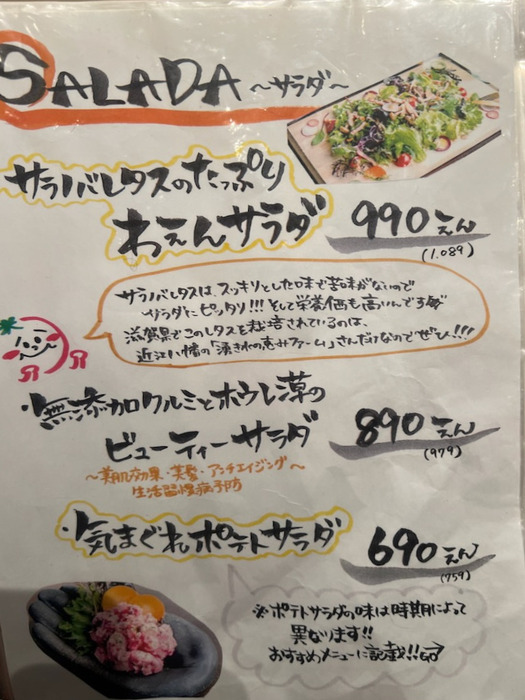 SALADA ~サラダ~
サラノバレタスのたっぷり
わぇんサラダ 990えん
(1.089)
サラノバレタスは スッキリとした味で苦味がないので
サラダにピッタリ!!! そして栄養価も高いんです
滋賀県でこのレタスを栽培されているのは、
近江八幡の「湧きれの里みファーム」さんだけなのでぜひ!!!
・無添加クルミとホウレン草の
ビューティーサラダ 890えん
(979)
～美肌効果・美髪・アンチエイジング～
生活習慣病予防
・気まぐれポテトサラダ 690えん
(759)
※ポテトサラダの味は時期によって
異なります!!
おすすめメニューに記載!!GO